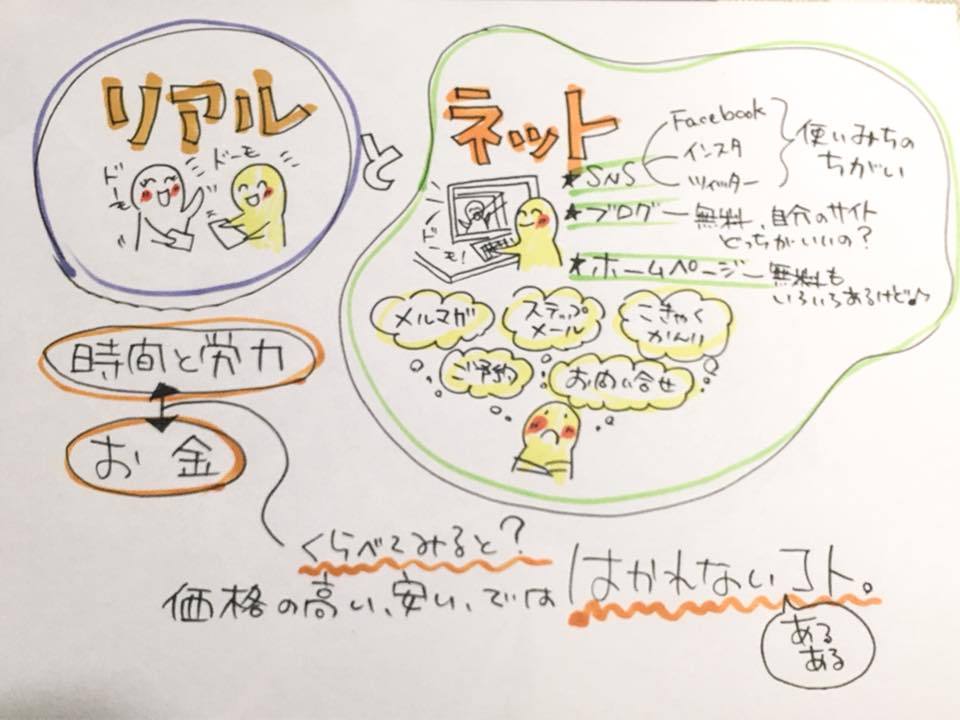 リアル
ドーモ
ドーモ
と
ネット
★SNS
Facebook
インスタ
ツイッター
使いみちの
ちがい
★ブログー無料、自分のサイト
どっちがいいの?
★ホームページー無料も
いろいろあるけど♪
ドーモ!
メルマガ
ステップ
メール
こきゃく
かんり
ご予約
お問い合せ
時間と労力
お金
くらべてみると?
価格の高い、安い、では はかれないコト。
ある
ある